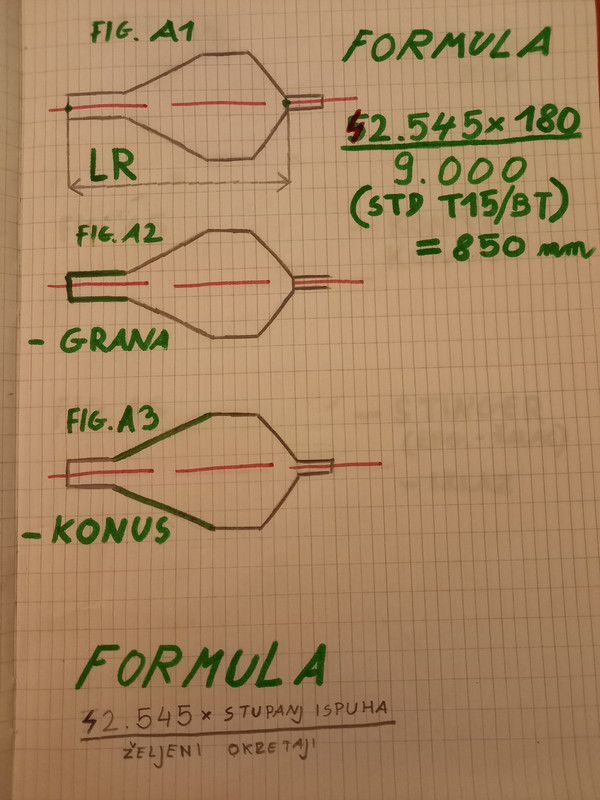 FIG. A1
LR
FORMULA
42.545 x 180
9.000
(STD T15/BT)
= 850 mm
FIG. A2
- GRANA
FIG. A3
- KONUS
FORMULA
42.545 x STUPANJ ISPUHA
ŽELJENI OKRETAJI